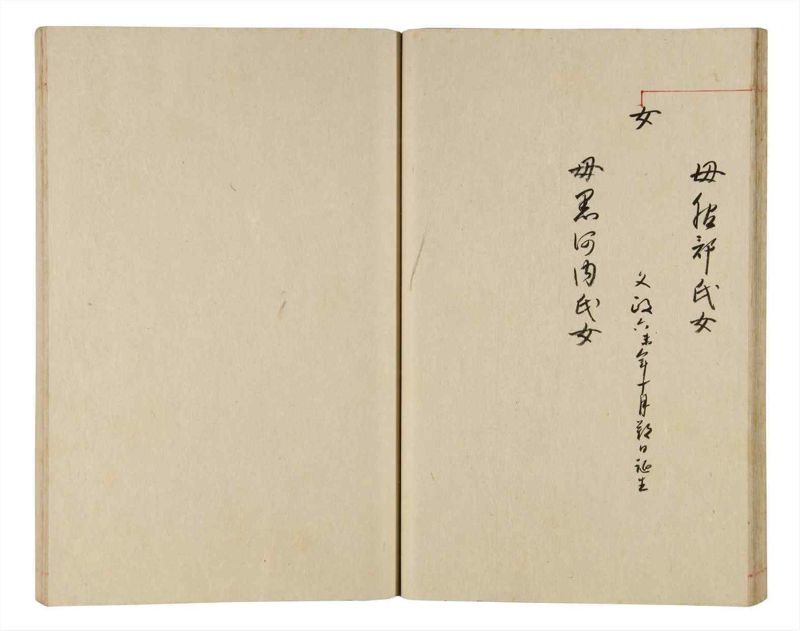 母服部氏女
女
文政六未年十月日誕生
母黒河内氏女